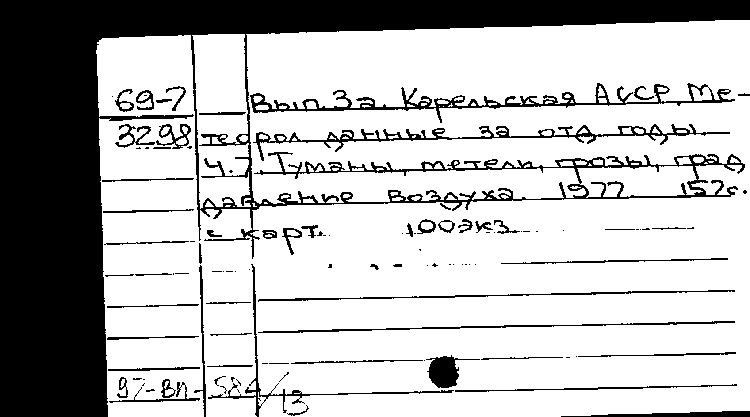 69-7 Вып. 3а. Карельская АССР. Ме-
3298 теорол. данные за отд. годы.
Ч.7. Туманы, метели, грозы, град
давление воздуха. 1977. 157с.
с карт. 100экз.
97-вп-584/13